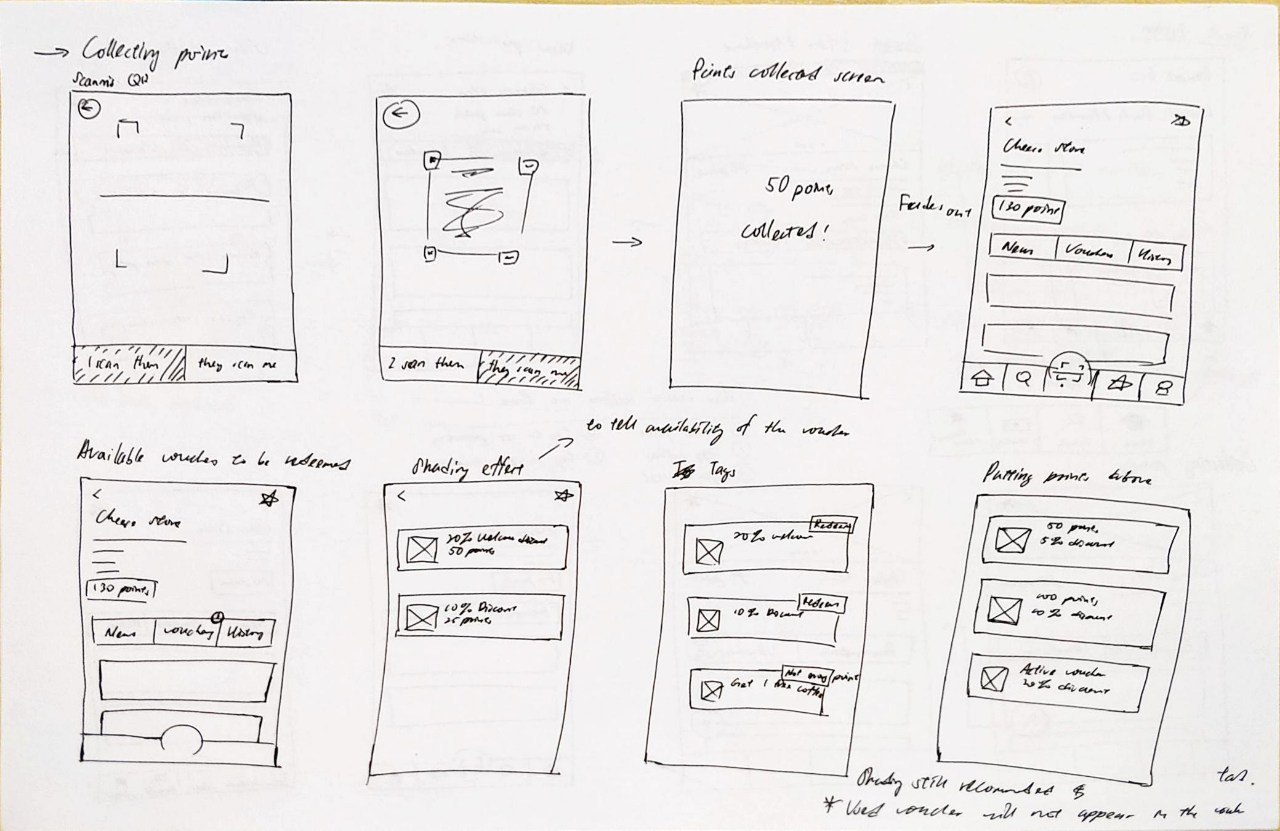 → Collecting points
Scanning QR
I scan them
they scan me
I scan them
they scan me
Points collected screen
50 points
collected!
Fades out
Cheers store
130 points
News
Vouchers
History
Available vouchers to be redeemed
Cheers store
130 points
News
voucher
History
Shading effect
to tell availability of the voucher
20% Welcome discount
50 points
10% Discount
25 points
Tags
20% welcom
Redeem
10% Discount
Redeem
Not enog points
Get 1 free coffee
Putting points above
50 points
5% discount
100 points
10% discount
Active voucher
20% discount
Shading still recommended &
* Used voucher will not appear in the
tab.